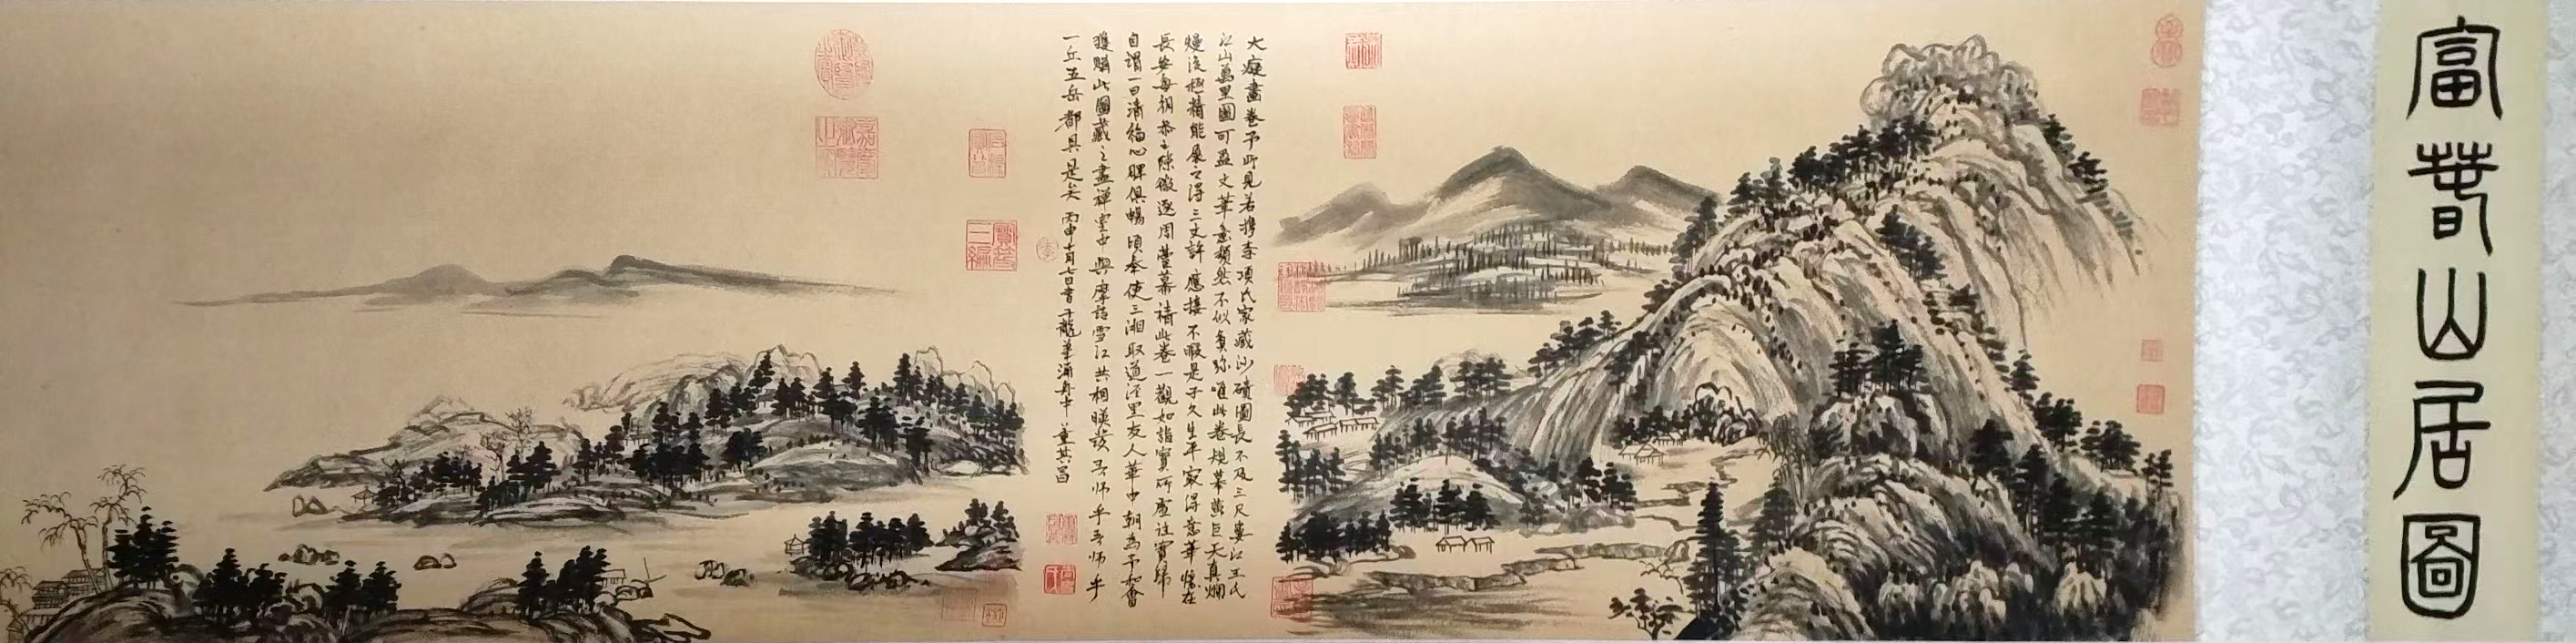 富春山居圖
大癡畫卷予所見若檇李項氏家藏沙磧圖長不及三尺婁江王氏
江山萬里圖可盈丈筆意頹然不似真跡唯此卷規摹董巨天真爛
熳復極精能展之得三丈許應接不暇是子久生平最得意筆憶在
長安每朝參之隙徵逐周臺幕請此卷一觀如詣寶所虛往實歸
自謂一日清福心脾俱暢頃奉使三湘取道涇里友人華中翰為予和會
獲購此圖藏之畫禪室中與摩詰雪江共相映發吾師乎吾師乎
一丘五岳都具是矣丙申十月七日書于龍華浦舟中董其昌